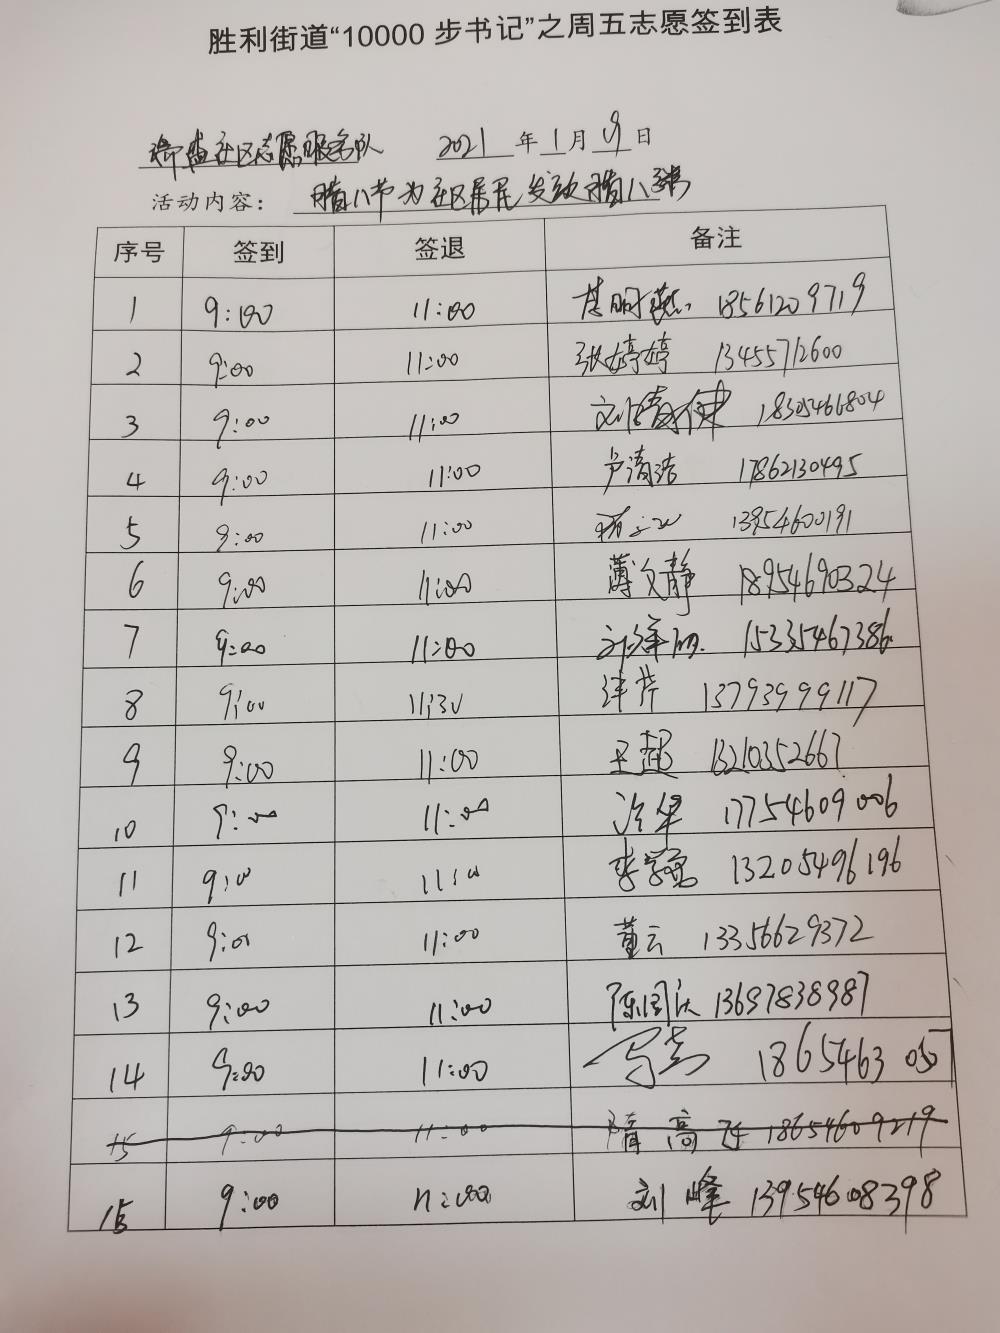 胜利街道“10000 步书记”之周五志愿签到表
社区志愿服务队 2021 年 1 月 9 日
活动内容： 腊八节为社区居民发放腊八粥
序号 签到 签退 备注
1 9:00 11:00 18561209719
2 9:00 11:00 张婷婷 13455712600
3 9:00 11:00 刘 18305466804
4 9:00 11:00 卢清洁 17862130495
5 9:00 11:00 13954600191
6 9:00 11:00 薄文静 18954690324
7 9:00 11:00 刘 15335467386
8 9:00 11:30 13793999117
9 9:00 11:00 王超 13210352667
10 9:00 11:00 冷军 17754609006
11 9:00 11:00 李 13205496196
12 9:00 11:00 董云 13356629372
13 9:00 11:00 陈国庆 13697838987
14 9:00 11:00 1865463 05
15 9:00 11:00 隋高 18654609219
15 9:00 11:00 刘峰 13954608398